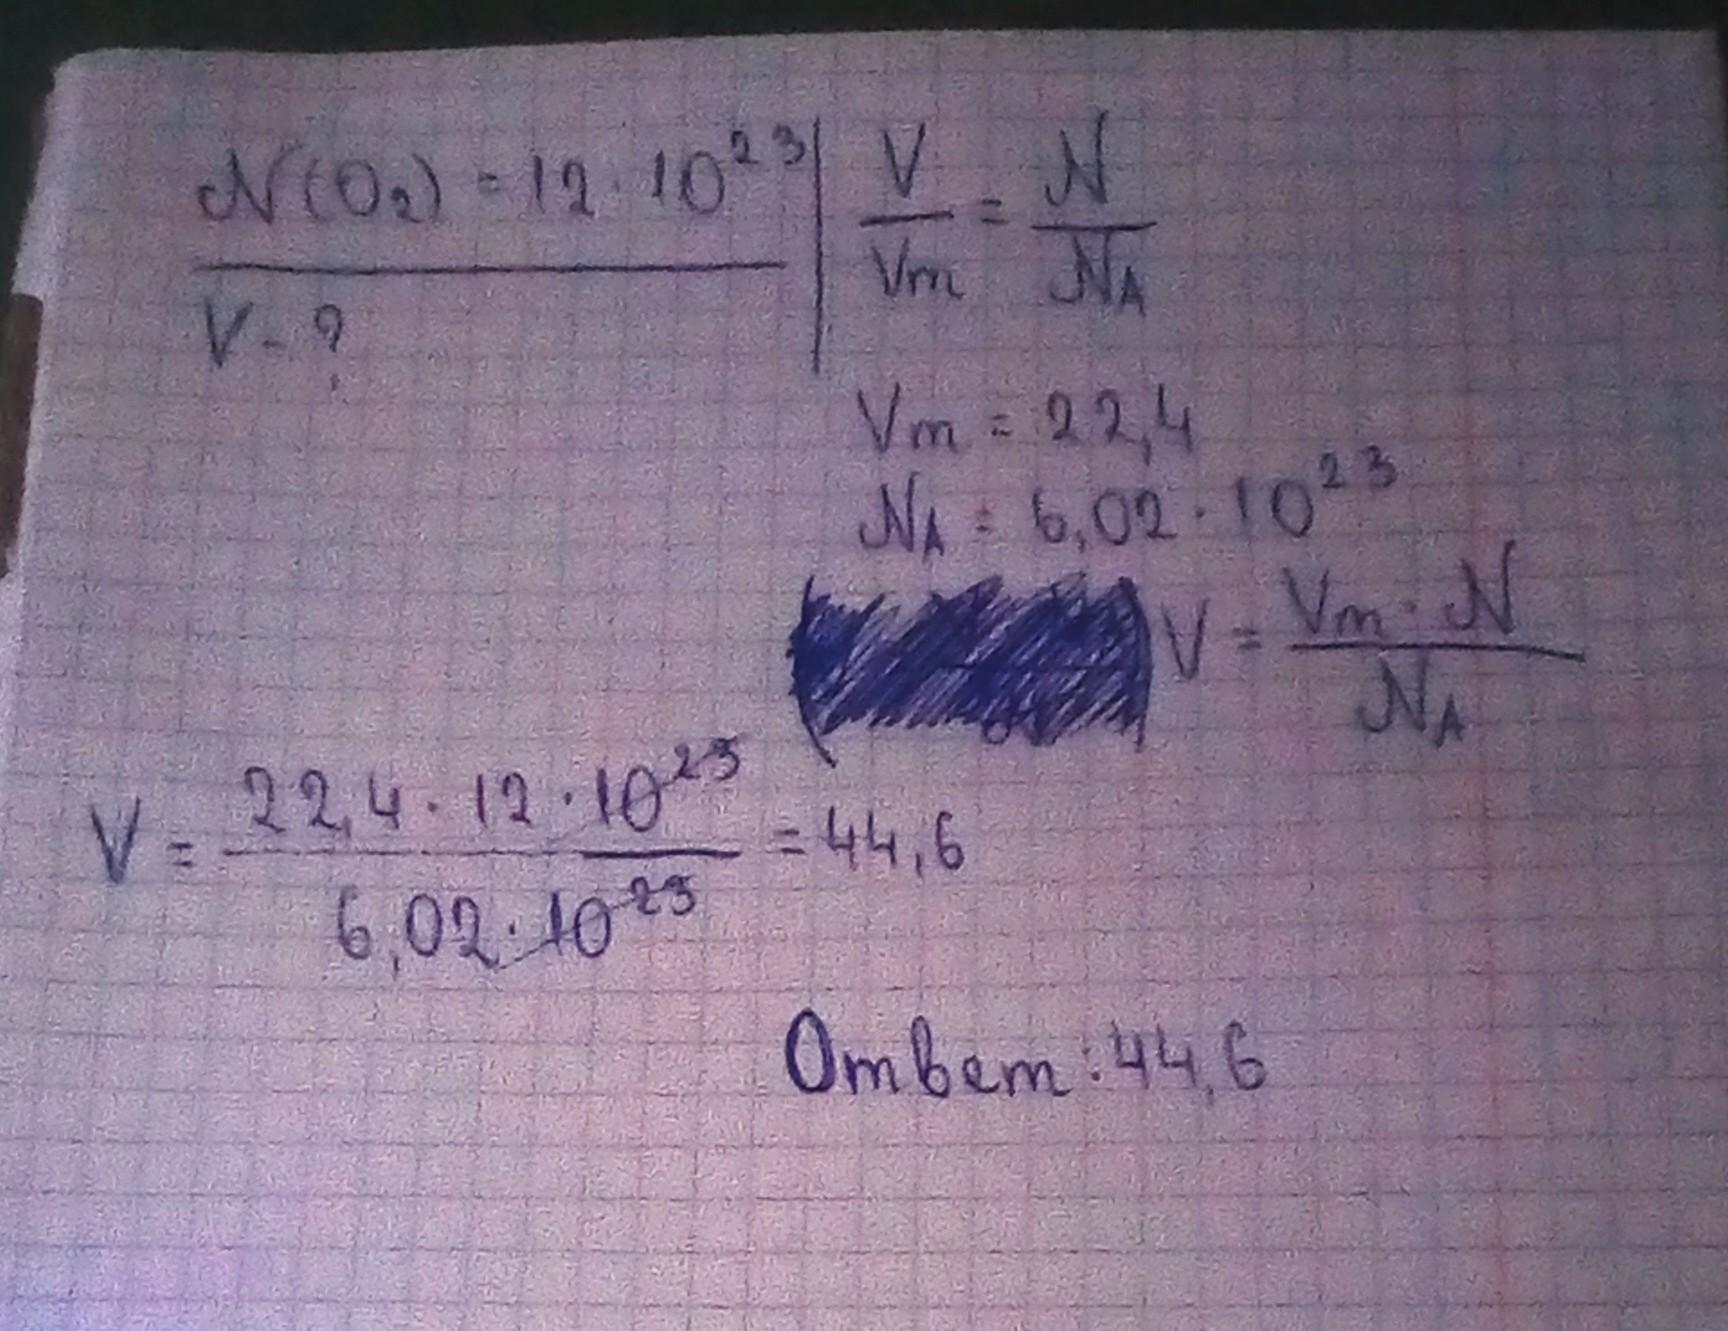 N(O₂) = 12 · 10²³
V - ?
V/Vm = N/NA
Vm = 22,4
NA = 6,02 · 10²³
V = Vm · N / NA
V = 22,4 · 12 · 10²³ / 6,02 · 10²³ = 44,6
Ответ: 44,6